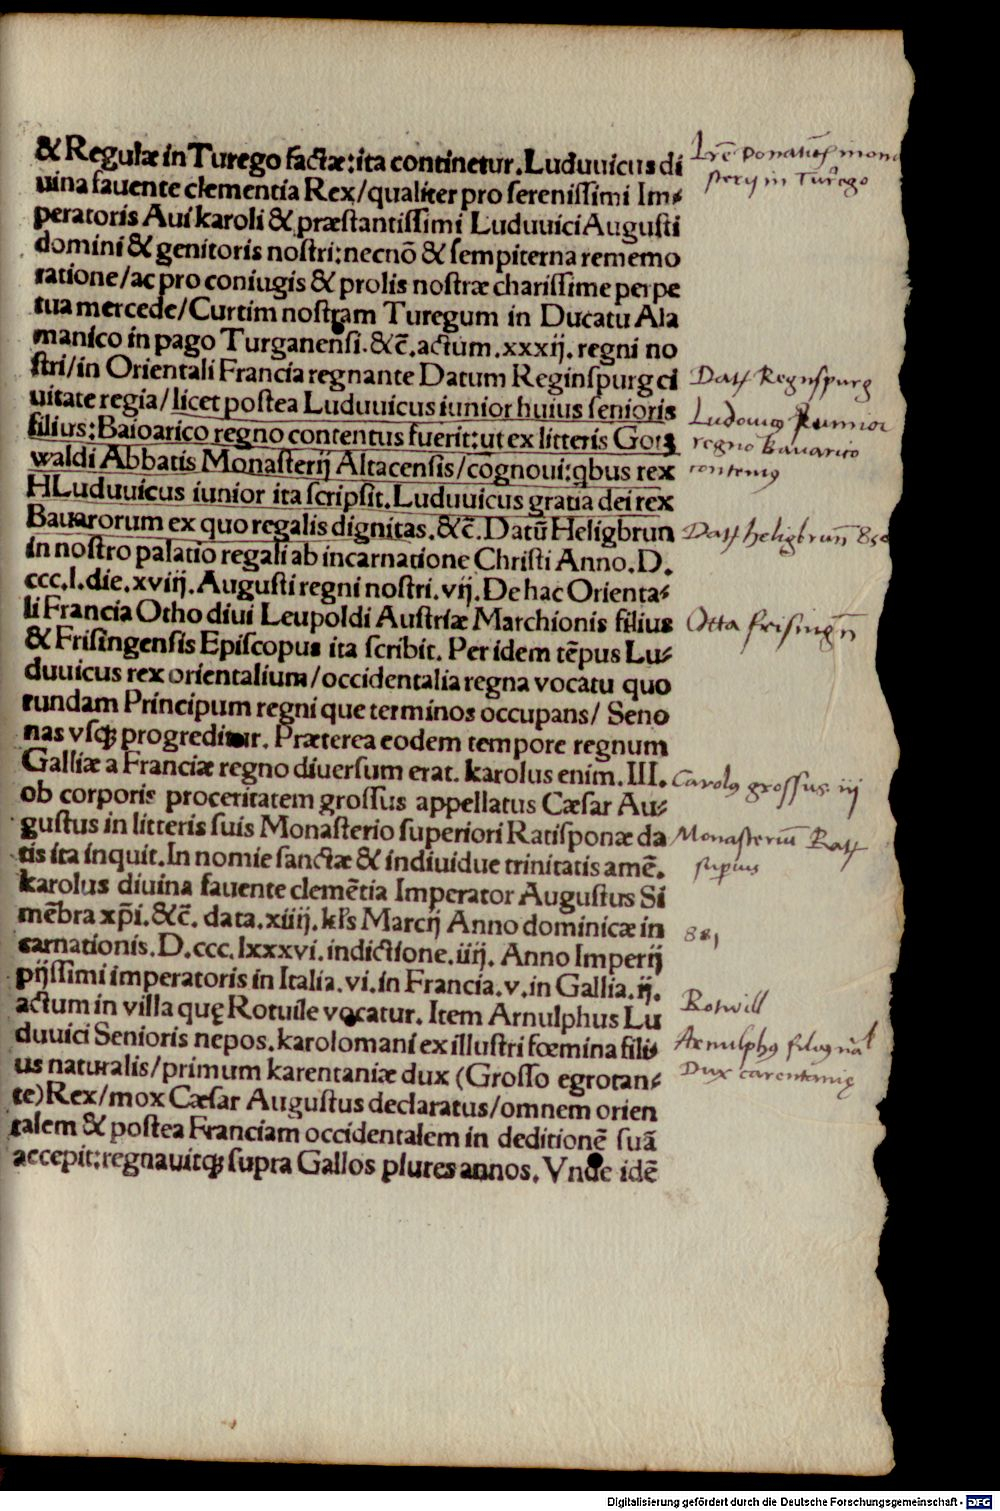 & Regulæ in Turego factæ: ita continetur. Luduuicus di
uina fauente clementia Rex/ qualiter pro serenissimi Im⸗
peratoris Aui karoli & præstantissimi Luduuici Augusti
domini & genitoris nostri: necnō & sempiterna rememo
ratione/ ac pro coniugis & prolis nostræ charissime perpe
tua mercede/ Curtim nostram Turegum in Ducatu Ala
manico in pago Turganensi. &c̄. actum. xxxij. regni no
stri/ in Orientali Francia regnante Datum Reginspurg ci
uitate regia/ licet postea Luduuicus iunior huius senioris
filius: Baioarico regno contentus fuerit: ut ex litteris Gotz
waldi Abbatis Monasterij Altacensis/ cognoui: qbus rex
HLuduuicus iunior ita scripsit. Luduuicus gratia dei rex
Bauarorum ex quo regalis dignitas. &c̄. Datū Heligbrun
in nostro palatio regali ab incarnatione Christi Anno. D.
ccc. l. die. xviij. Augusti regni nostri. vij. De hac Orienta⸗
li Francia Otho diui Leupoldi Austriæ Marchionis filius
& Frisingensis Episcopus ita scribit. Per idem tēpus Lu⸗
duuicus rex orientalium/ occidentalia regna vocatu quo
rundam Principum regni que terminos occupans/ Seno
nas vsqꝫ progreditur. Præterea eodem tempore regnum
Galliæ a Franciæ regno diuersum erat. karolus enim. III.
ob corporis proceritatem grossus appellatus Cæsar Au⸗
gustus in litteris suis Monasterio superiori Ratisponæ da
tis ita inquit. In nomie sanctæ & indiuidue trinitatis amē.
karolus diuina fauente clemētia Imperator Augustus Si
mēbra xp̄i. &c̄. data. xiiij. kl̄s Marcij Anno dominicæ in
carnationis. D. ccc. lxxxvi. indictione. iiij. Anno Imperij
pijssimi imperatoris in Italia. vi. in Francia. v. in Gallia. ij.
actum in villa quę Rotuile vocatur. Item Arnulphus Lu
duuici Senioris nepos. karolomani ex illustri fœmina fili⸗
us naturalis/ primum karentaniæ dux (Grosso egrotan⸗
te) Rex/ mox Cæsar Augustus declaratus/ omnem orien
talem & postea Franciam occidentalem in deditionē suā
accepit: regnauitqꝫ supra Gallos plures annos. Vnde idē
Lrē Donationis mona
sterij in Turego
Datum Regnspurg
Ludouicus Iunnior
regno bauarico
contentus
Datum heligbrunn 850
Otta frisingn̄
Carolus grossus iij
Monasteriū Rat
superius
881
Rotwill
Arnulphus filius nal
Dux carentanię
Digitalisierung gefördert durch die Deutsche Forschungsgemeinschaft - DFG